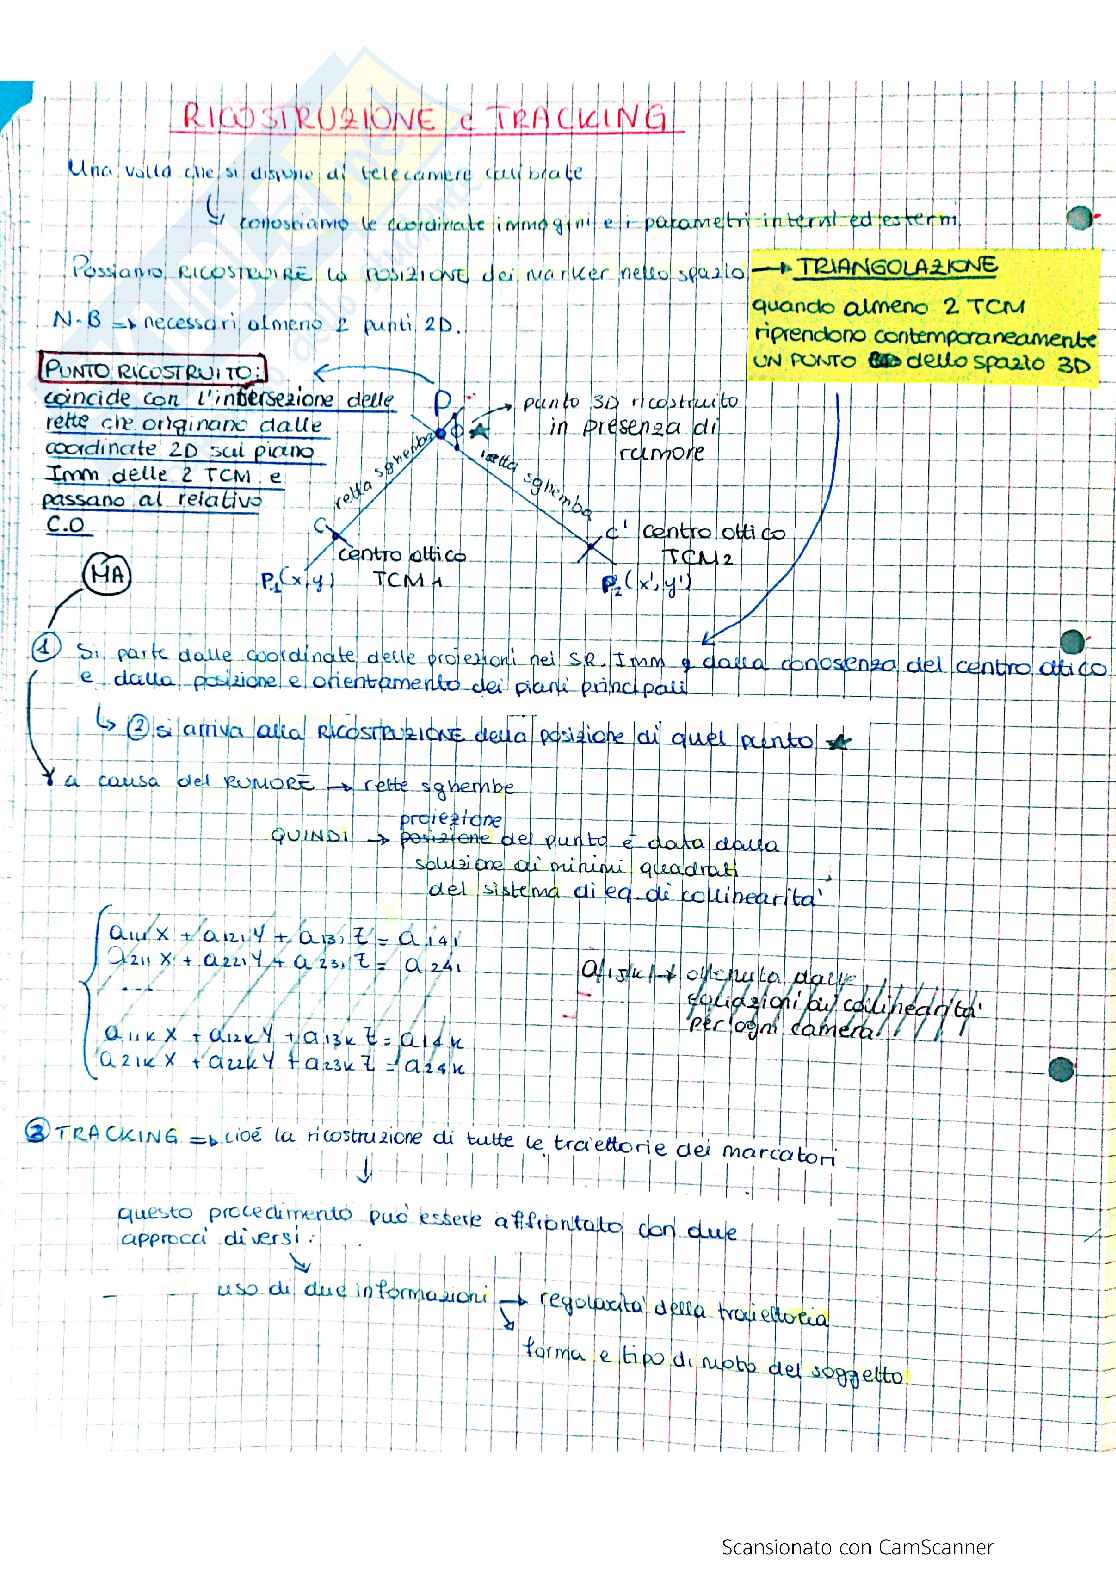 RICOSTRUZIONE e TRACKING
Una volta che si dispone di telecamere calibrate
conosciamo le coordinate immagini e i parametri interni ed esterni
Possiamo RICOSTRUIRE la POSIZIONE dei marker nello spazio → TRIANGOLAZIONE
quando almeno 2 TCM
riprendono contemporaneamente
UN PUNTO dello spazio 3D
N.B → necessari almeno 2 punti 2D.
PUNTO RICOSTRUITO:
coincide con l'intersezione delle
rette che originano dalle
coordinate 2D sul piano
Imm delle 2 TCM e
passano al relativo
C.O
P
punto 3D ricostruito
in presenza di
rumore
retta sghemba
retta sghemba
C
centro ottico
TCM 1
C' centro ottico
TCM2
P1(x,y)
P2(x',y')
MA
1 Si parte dalle coordinate delle proiezioni nei S.R. Imm e dalla conosenza del centro ottico
e dalla posizione e orientamento dei piani principali
↳ 2 si arriva alla RICOSTRUZIONE della posizione di quel punto ★
a causa del RUMORE → rette sghembe
proiezione
QUINDI → posizione del punto è data dalla
soluzione ai minimi quadrati
del sistema di eq. di collinearità
a11i X + a12i Y + a13i Z = a14i
a21i X + a22i Y + a23i Z = a24i
....
a11k X + a12k Y + a13k Z = a14k
a21k X + a22k Y + a23k Z = a24k
ottenuta dalle
equazioni di collinearità
per ogni camera
3 TRACKING ⇒ cioé la ricostruzione di tutte le traiettorie dei marcatori
questo procedimento può essere affrontato con due
approcci diversi:
uso di due informazioni → regolarità della traiettoria
forma e tipo di moto del soggetto
Scansionato con CamScanner